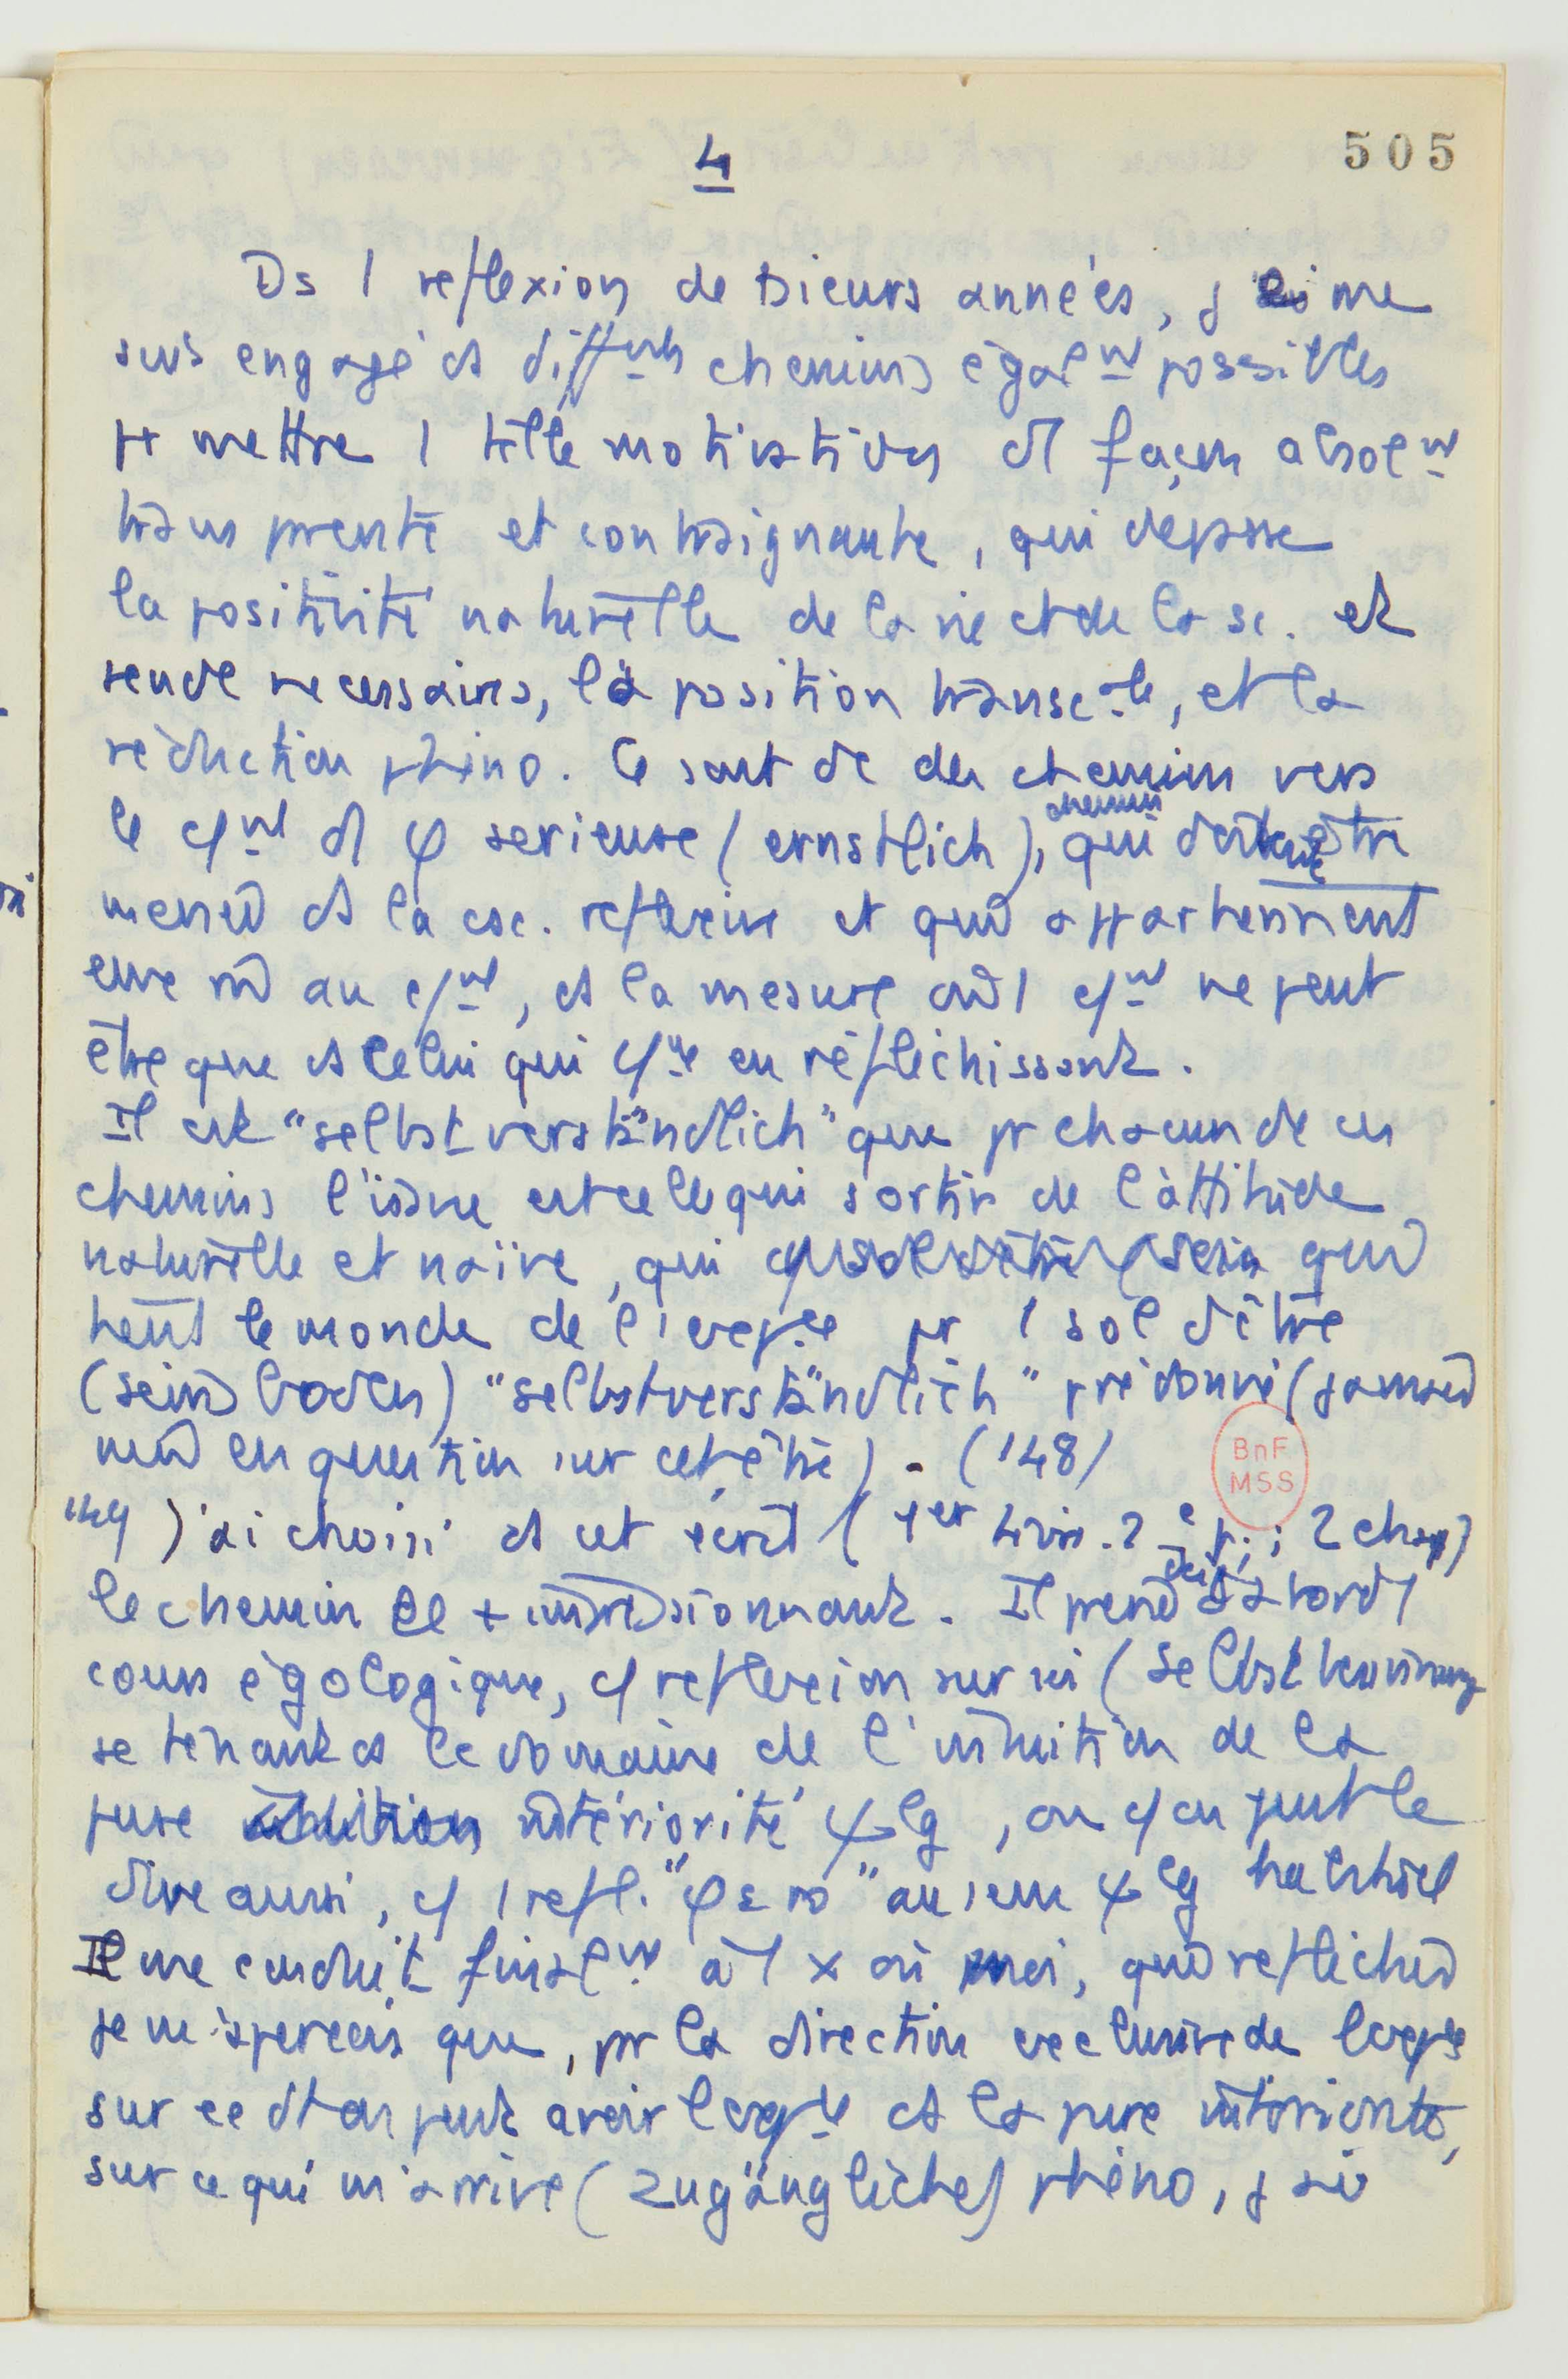 505
4
Ds 1 reflexion de sieurs années, j me
suis engagé ds différents chemins égalnt possibles
pr mettre 1 telle motivation d1 façon absolnt
et contraignante, qui dépasse
la positivité naturelle de la vie et de la sc. et
rende necessaires, la position transcale, et la
réduction phéno. Ce sont dc des chemins vers
le cnt d1 φ serieuse (ernstlich), chemins qui doivent être
ds la csc. reflexive et qui appartiennent
au cnt, ds la mesure où 1 cnt ne peut
être que ds celui qui cce en réfléchissant.
Il est "selbstverständlich" que pr chacun de ces
chemins l'issue est celle qui sortir de l'attitude
naturelle et naïve, qui
tent le monde de l'expce pr 1 sol d'être
(seinsboden) "selbstverständlich" prédonné (jamais
en question sur cet être). (148)
149 J'ai choisi ds cet écrit (1er Livre. 2e p.; 2 chap)
le chemin le + impressionnant. Il prend d'abord 1
cours égologique, c reflexion sur soi (Selbstbesinnung
se tenant ds le domaine de l'intuition de la
pure intériorité ψlg, ou c on peut le
dire aussi, c 1 refl. "φéno" au sens ψlg habituel
Il me conduit finalnt à 1 x où moi, qui
je m'aperçois que, pr la direction exclusive de l'expce
sur ce dt on peut avoir l'expce ds la pure intériorité,
sur ce qui m'arrive (zugängliches) phéno, j ai
BnF
MSS